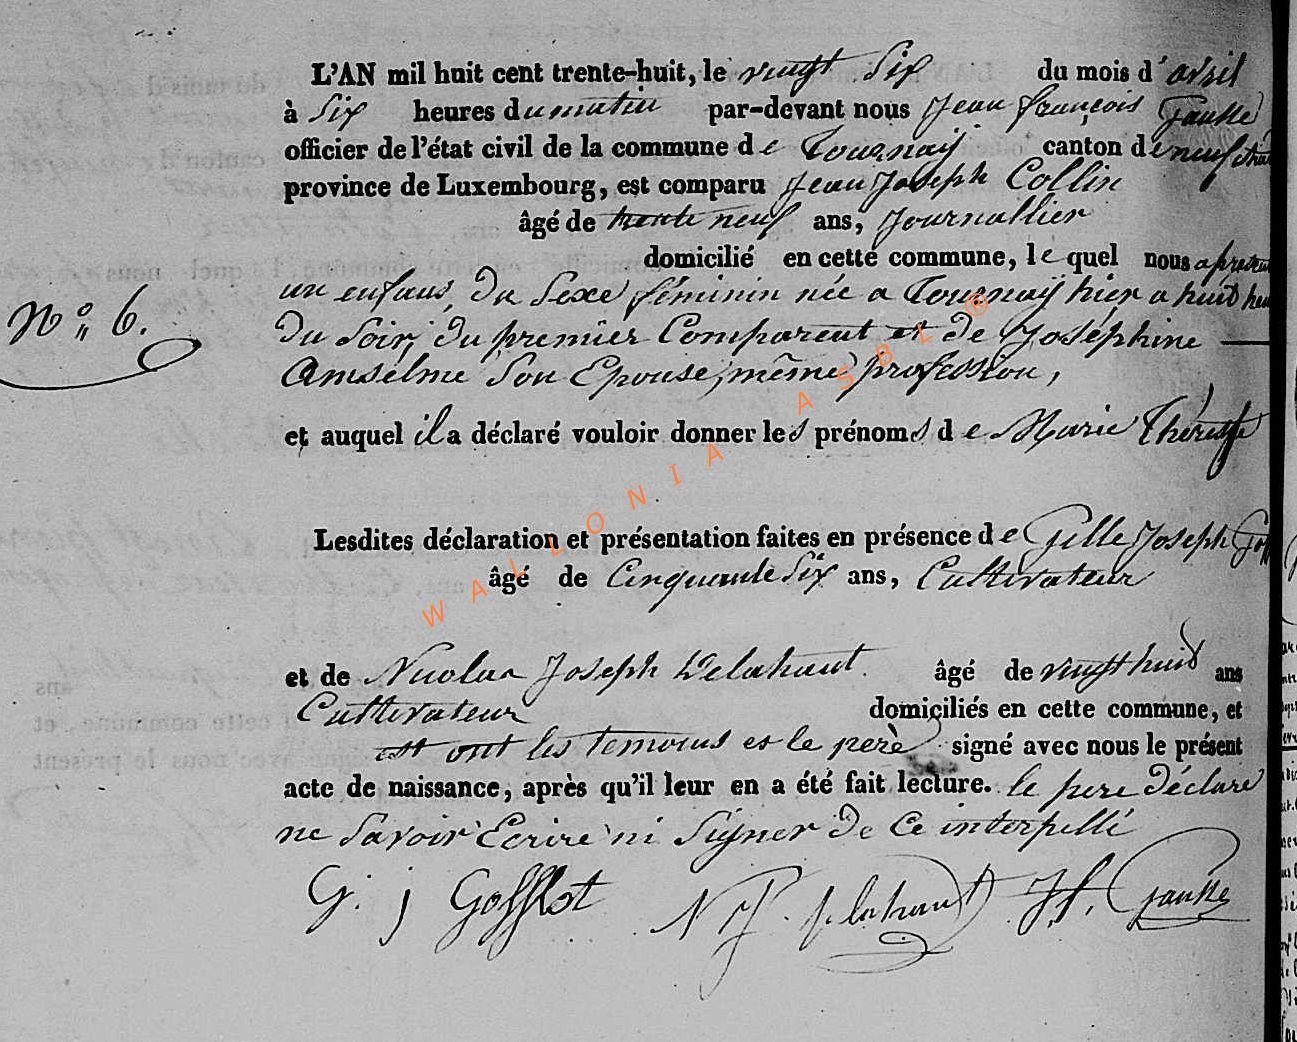 L'AN mil huit cent trente-huit, le vingt Six du mois d' avril
à Six heures du matin par-devant nous Jean françois
officier de l'état civil de la commune de Tournay canton de neufchat
province de Luxembourg, est comparu Jean Joseph Collin
âgé de trente neuf ans, Journallier
domicilié en cette commune, le quel nous a présen
N° 6.
un enfans, du Sexe féminin née a Tournaÿ hier a huit heu
du Soir, du premier Comparent et de Joséphine
Amselme Son Epouse, même profession,
et auquel il a déclaré vouloir donner les prénoms de Marie Théresse
Lesdites déclaration et présentation faites en présence de Gille Joseph Goff
âgé de Cinquante Six ans, Cultivateur
et de Nicolas Joseph Delahaut âgé de vingt huit ans
Cultivateur domiciliés en cette commune, et
est ont les temoins et le père signé avec nous le présent
acte de naissance, après qu'il leur en a été fait lecture. le pere déclare
ne Savoir Ecrire ni Signer de Ce interpellé
G. j Goffflot N J. Delahaut J f.
WALLONIA ASBL ®